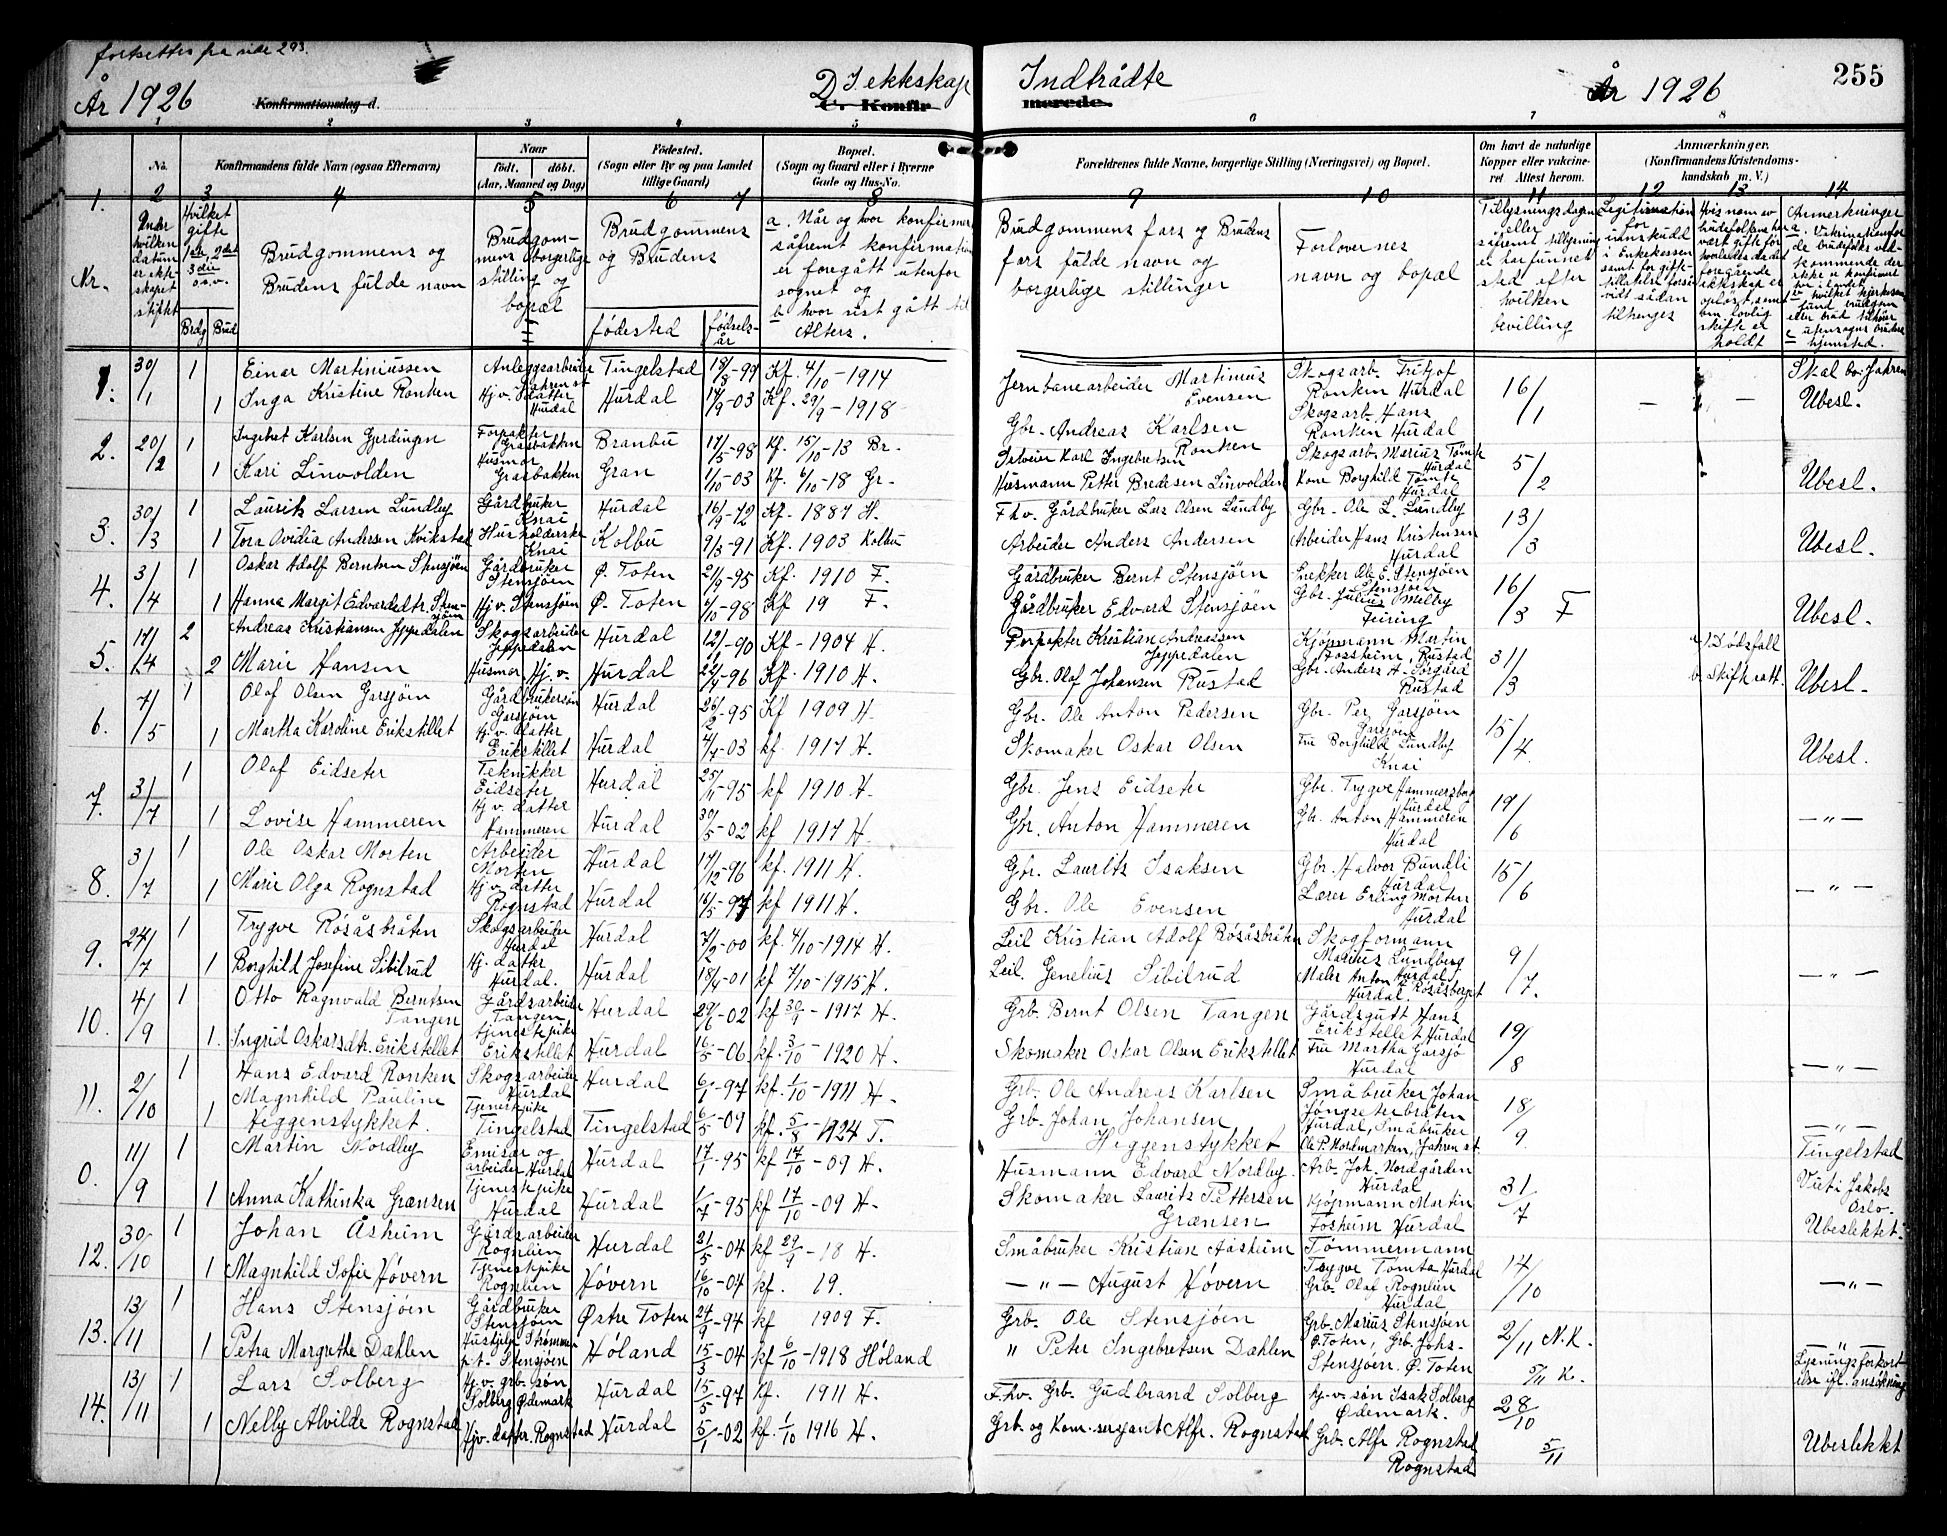 fortsettes fra side 293.
År 1926
Konfirmationsdag d.
D. I ekteskap
C. Konfir
Indtrådte
merede.
År 1926
255
1 2 3 4 5 6 7 8
No.
Konfirmandens fulde Navn (ogsaa Efternavn)
Naar
født. døbt.
(Aar, Maaned og Dag)
Fødested.
(Sogn eller By og paa Landet
tillige Gaard)
Bopæl.
(Sogn og Gaard eller i Byerne
Gade og Hus-No.
Forældrenes fulde Navne, borgerlige Stilling (Næringsvei) og Bopæl.
Om havt de naturlige
Kopper eller vakcine-
ret Attest herom.
Anmærkninger.
(Konfirmandens Kristendoms-
kundskab m. V.)
1. 2 3 4 5 6 7 8 9 10 11 12 13 14
Nr.
Under
hvilken
datum
er ekte-
skapet
stiftet
Hvilket
gifte
1ste 2det
3die
o.s.v.
Brdg Brud
Brudgommens og
Brudens fulde navn
Brudgom-
mens borgerlige
stilling og
bopæl
Brudgommens
og Brudens
fødested
fødsels-
år
a. Når og hvor konfirmer
såfremt konfirmation
er foregått utenfor
sognet og
b hvor sist gått til
Alters.
Brudgommens fars og Brudens
fars fulde navn og
borgerlige stillinger
Forlovernes
navn og bopæl
Tillysningsdagen
eller
såfremt tillysning
ei har funnet
sted efter
hvilken
bevilling
Legitimation
for
innskudd
i Enkekassen
samt for gifte-
tillatelse forså-
vidt sådan
tiltrenges
Hvis noen av
brudefolkene har
vært gifte før
hvorledes det
foregående
ekteskap er
opløst, samt
om lovlig
skifte er
holdt
Anmerkninger
1. 30/1 1 Einar Martiniussen Anleggsarbeider Jahren st Tingelstad 18/8-99 Kf. 4/10-1914 Jernbanearbeider Martinus Evensen Skogsarb. Fritjof Ronken Hurdal 16/1 Skal bo Jahren
1 Inga Kristine Ronken Hj.v. datter Hurdal Hurdal 17/9-03 Kf. 29/9-1918 Gbr. Andreas Karlsen Ronken Skogsarb. Hans Ronken Hurdal Ubesl.
2. 20/2 Ingebret Karlsen Gjerdingen Forpakter Grasbakken Brandbu 17/5-98 Kf. 15/10-13 Br. Karl Ingebretsen Skogsarb. Marius Tømte Hurdal 5/2
1 Kari Linvolden Husmor Grasbakken Gran 1/10-03 Kf. 6/10-18 Gr. Husmann Petter Bredesen Linvolden Kone Borghild Tømte Hurdal Ubesl.
3. 30/3 1 Laurits Larsen Lundby Gårdbruker Knai Hurdal 16/9-72 Kf. 1887 H. Fhv. Gårdbruker Lars Olsen Lundby Gbr. Ole L. Lundby 13/3
1 Tora Ovidia Andersen Kvikstad Husholderske Knai Kolbu 9/3-91 Kf. 1903 Kolbu Arbeider Anders Andersen Arbeider Hans Kristensen Hurdal Ubesl.
4. 3/4 1 Oskar Adolf Berntsen Stensjøen Gårdbruker Stensjøen Ø. Toten 21/9-95 Kf. 1910 F. Gårdbruker Bernt Stensjøen Snekker Ole E. Stensjøen 16/3 F
1 Hanna Margit Edvardsdtr. Stensjøen Hj.v. Stensjøen Ø. Toten -98 Kf 19 F. Gårdbruker Edvard Stensjøen Gbr. Julius Milby Feiring Ubesl.
5. 17/4 2 Andreas Kristiansen Jeppedalen Skogsarbeider Jeppedalen Hurdal 12/1-90 Kf. 1904 H. Forpakter Kristian Andreassen Jeppedalen Kjøpmann Martin Fossheim, Rustad 31/3 a. Dødsfall
2 Marie Hansen Husmor Hj.v. Hurdal 22/4-96 Kf. 1910 H. Gbr. Olaf Johansen Rustad Gbr. Anders A. Sørgård Rustad b. Skifterett. Ubesl.
6. 7/5 1 Olaf Olsen Garsjøen Gårdbrukersøn Garsjøen Hurdal 26/2-95 Kf 1909 H. Gbr. Ole Anton Pedersen Gbr. Per Garsjøen Garsjøen 15/4
1 Martha Karoline Erikstillet Hj.v. datter Erikstillet Hurdal 4/4-03 kf. 1917 H. Skomaker Oskar Olsen Fru Borghild Lundby Knai Ubesl.
7. 3/7 1 Olaf Eidseter Teknikker Eidseter Hurdal 25/11-95 kf 1910 H. Gbr. Jens Eidseter Gbr. Trygve Hammersborg Hurdal 19/6
1 Lovise Hammeren Hj.v. datter Hammeren Hurdal 30/5-02 kf 1917 H. Gbr. Anton Hammeren Gbr. Anton Hammeren Hurdal — " —
8. 3/7 1 Ole Oskar Morten Arbeider Morten Hurdal 17/12-96 kf. 1911 H. Gbr. Laurits Isaksen Gbr. Halvor Bundli Hurdal 15/6
1 Marie Olga Rognstad Hj.v. datter Rognstad Hurdal 16/5-97 kf 1911 H. Gbr. Ole Evensen Lærer Erling Morten Hurdal — " —
9. 24/7 1 Trygve Røsåsbråten Skogsarbeider Hurdal Hurdal 7/2-00 kf. 4/10-1914 H. Leil Kristian Adolf Røsåsbråten Skogformann Marius Lundberg 9/7.
1 Borghild Josefine Sibilrud Hj. datter Hurdal. Hurdal 18/4-01 kf 7/10-1915 H. Leil. Genelius Sibilrud Maler Anton Røsåsberget Hurdal. — " —
10. 4/9 1 Otto Ragnvald Berntsen Tangen Gårdsarbeider Tangen Hurdal 29/6-02 kf 30/9-1917 H. Grb. Bernt Olsen Tangen Gårdsgutt Hans Erikstellet Hurdal 19/8
1. Ingrid Oskarsdtr. Erikstellet tjenestepike Erikstillet Hurdal 16/5-06 kf. 3/10-1920 H. Skomaker Oskar Olsen Erikstillet Fru Martha Garsjø Hurdal — " —
11. 2/10 1 Hans Edvard Ronken Skogsarbeider Hurdal Hurdal 6/1-97 kf. 1/10-1911 H. Grb. Ole Andreas Karlsen Småbruker Johan Jøngseterbråten Hurdal, 18/9.
1 Magnhild Pauline Heggenstykket. Tjenestepike Tingelstad Tingelstad 6/5-09 kf. 5/8-1924 T. Grb. Johan Johansen Heggenstykket Småbruker Ole P. Nordmarken, Jahren st. — " — Tingelstad
0. 11/9 1 Martin Nordby Emisær og arbeider Hurdal Hurdal 17/1-95 kf 17/10-09 H. Husmann Edvard Nordby. Arb. Joh. Nordgården Hurdal 31/7 Viet i Jakobs Oslo.
1 Anna Kathinka Grænsen Tjenestepike Hurdal Hurdal 1/7-95 kf 17/10-09 H. Skomaker Laurits Pettersen Grænsen Kjøpmann Martin Fosheim Hurdal Ubeslektet.
12. 30/10 1 Johan Åsheim Gårdsarbeider Rognlien Hurdal 21/5-04 kf 29/9-18 H. Småbruker Kristian Aasheim Tømmermann Trygve Tømta Hurdal 14/10
1 Magnhild Sofie Høvern Tjenestepike Rognlien Høvern 16/10-04 kf. 19. — " — August Høvern Grb. Olaf Rognlien Hurdal — " —
13. 13/11 1 Hans Stensjøen Gårdbruker Stensjøen Østre Toten 24/9-94 kf 1909 F. Grb. Ole Stensjøen Grb. Marius Stensjøen Ø. Toten, 2/11 N.K.
1 Petra Margrethe Dahlen Hushjelp Strømmen p.t. Stensjøen Høland 15/3-04 kf 6/10-1918 Høland " Peter Ingebretsen Dahlen Grb. Johs. Stensjøen. Ø. Toten K. " Lysningsforkortelse efl. ansøkning
14. 13/11 1 Lars Solberg Hj.v. grb. søn Solberg Ødemark Hurdal 15/5-97 kf. 1911 H. F.hv. Grb. Gudbrand Solberg hj.v. søn Isak Solberg Ødemark. 28/10
1 Nelly Alvilde Rognstad Hjv. datter. Rognstad Hurdal 5/1-02 kf. 1/10 1916 H. Grb. og Kom. sersjant Alfr. Rognstad Grb. Alfr Rognstad Rognstad 5/11 Ubeslektet